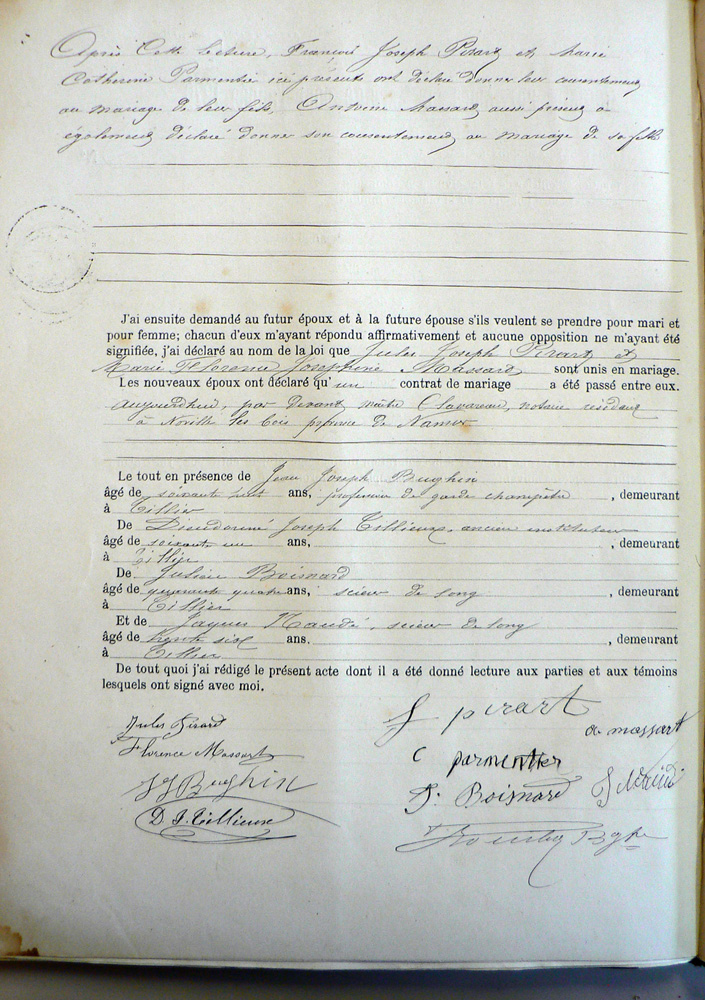 Après Cette lecture, François Joseph Pirart et Marie
Catherine Parmentier ici présents ont déclaré donner leur consentement
au mariage de leur fils, Antoine Massart aussi présent a
également déclaré donner son consentement au mariage de sa fille
J'ai ensuite demandé au futur époux et à la future épouse s'ils veulent se prendre pour mari et
pour femme; chacun d'eux m'ayant répondu affirmativement et aucune opposition ne m'ayant été
signifiée, j'ai déclaré au nom de la loi que Jules Joseph Pirart et
Marie Florence Joséphine Massart sont unis en mariage.
Les nouveaux époux ont déclaré qu'un contrat de mariage a été passé entre eux.
aujourdhui, par devant maître Clavareau, notaire résidant
à Noville les bois province de Namur
Le tout en présence de Jean Joseph Bughin
âgé de soixante huit ans, profession de garde champêtre, demeurant
à Tillier
De Dieudonné Joseph Tillieux, ancien instituteur
âgé de soixante un ans, , demeurant
à Tillier
De Julien Boisnard
âgé de quarante quatre ans, scieur de long, demeurant
à Tillier
Et de Jaques Naudé, scieur de long
âgé de trente six ans. , demeurant
à Tillier
De tout quoi j'ai rédigé le présent acte dont il a été donné lecture aux parties et aux témoins
lesquels ont signé avec moi.
Jules Pirart
f pirart
a massart
Florence Massart
c parmentier
JJ Bughin
J. Boisnard
D. J. Tillieux